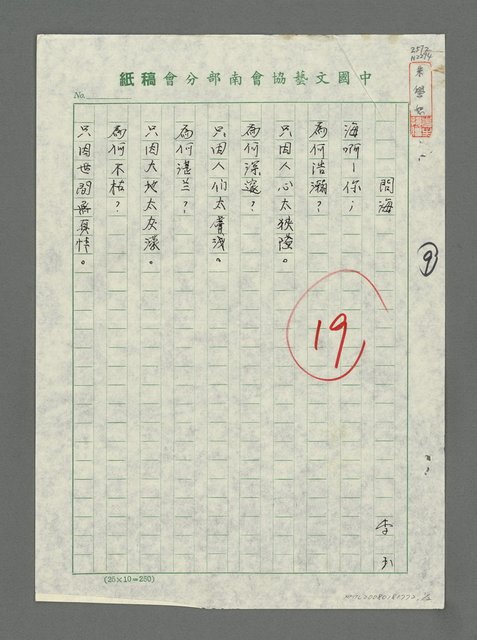 中國文藝協會南部分會稿紙
No.
問海
李
海啊!你;
為何浩瀚?
只因人心太狹隘。
為何深邃?
只因人们太膚淺。
為何湛兰?
只因大地太灰濛。
為何不枯?
只因世間無真情。
19
9
(25×10=250)